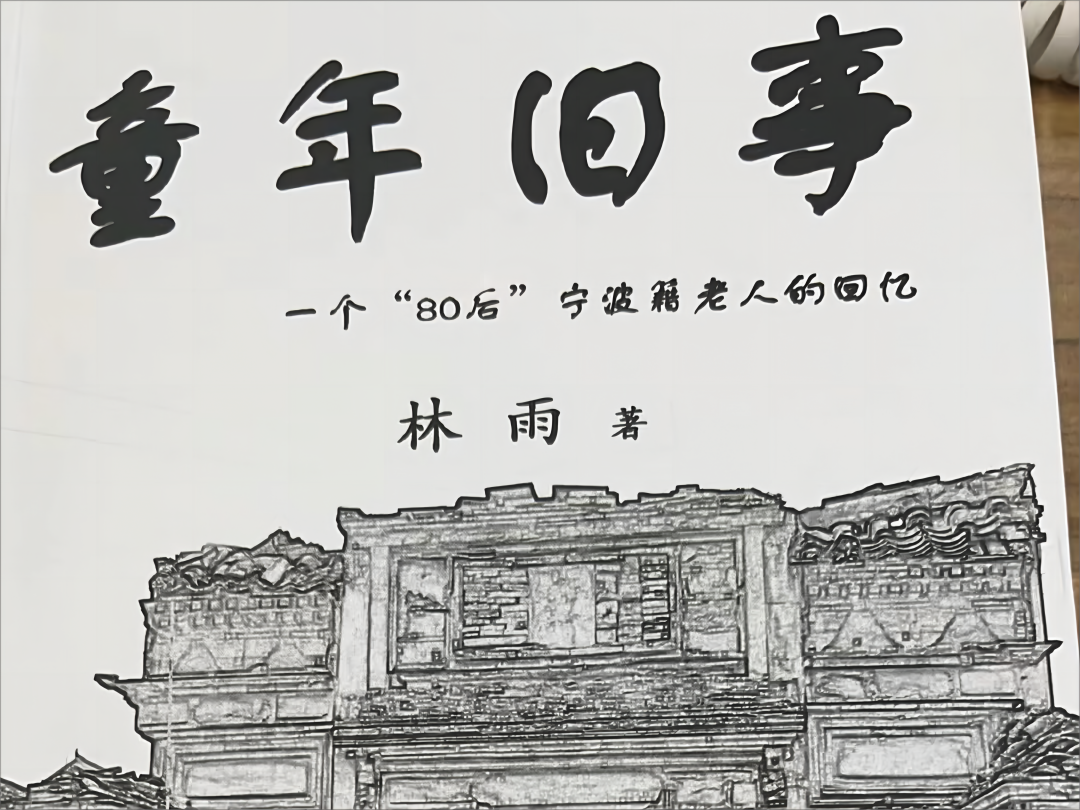 童年旧事
一个“80后”宁波籍老人的回忆
林雨 著